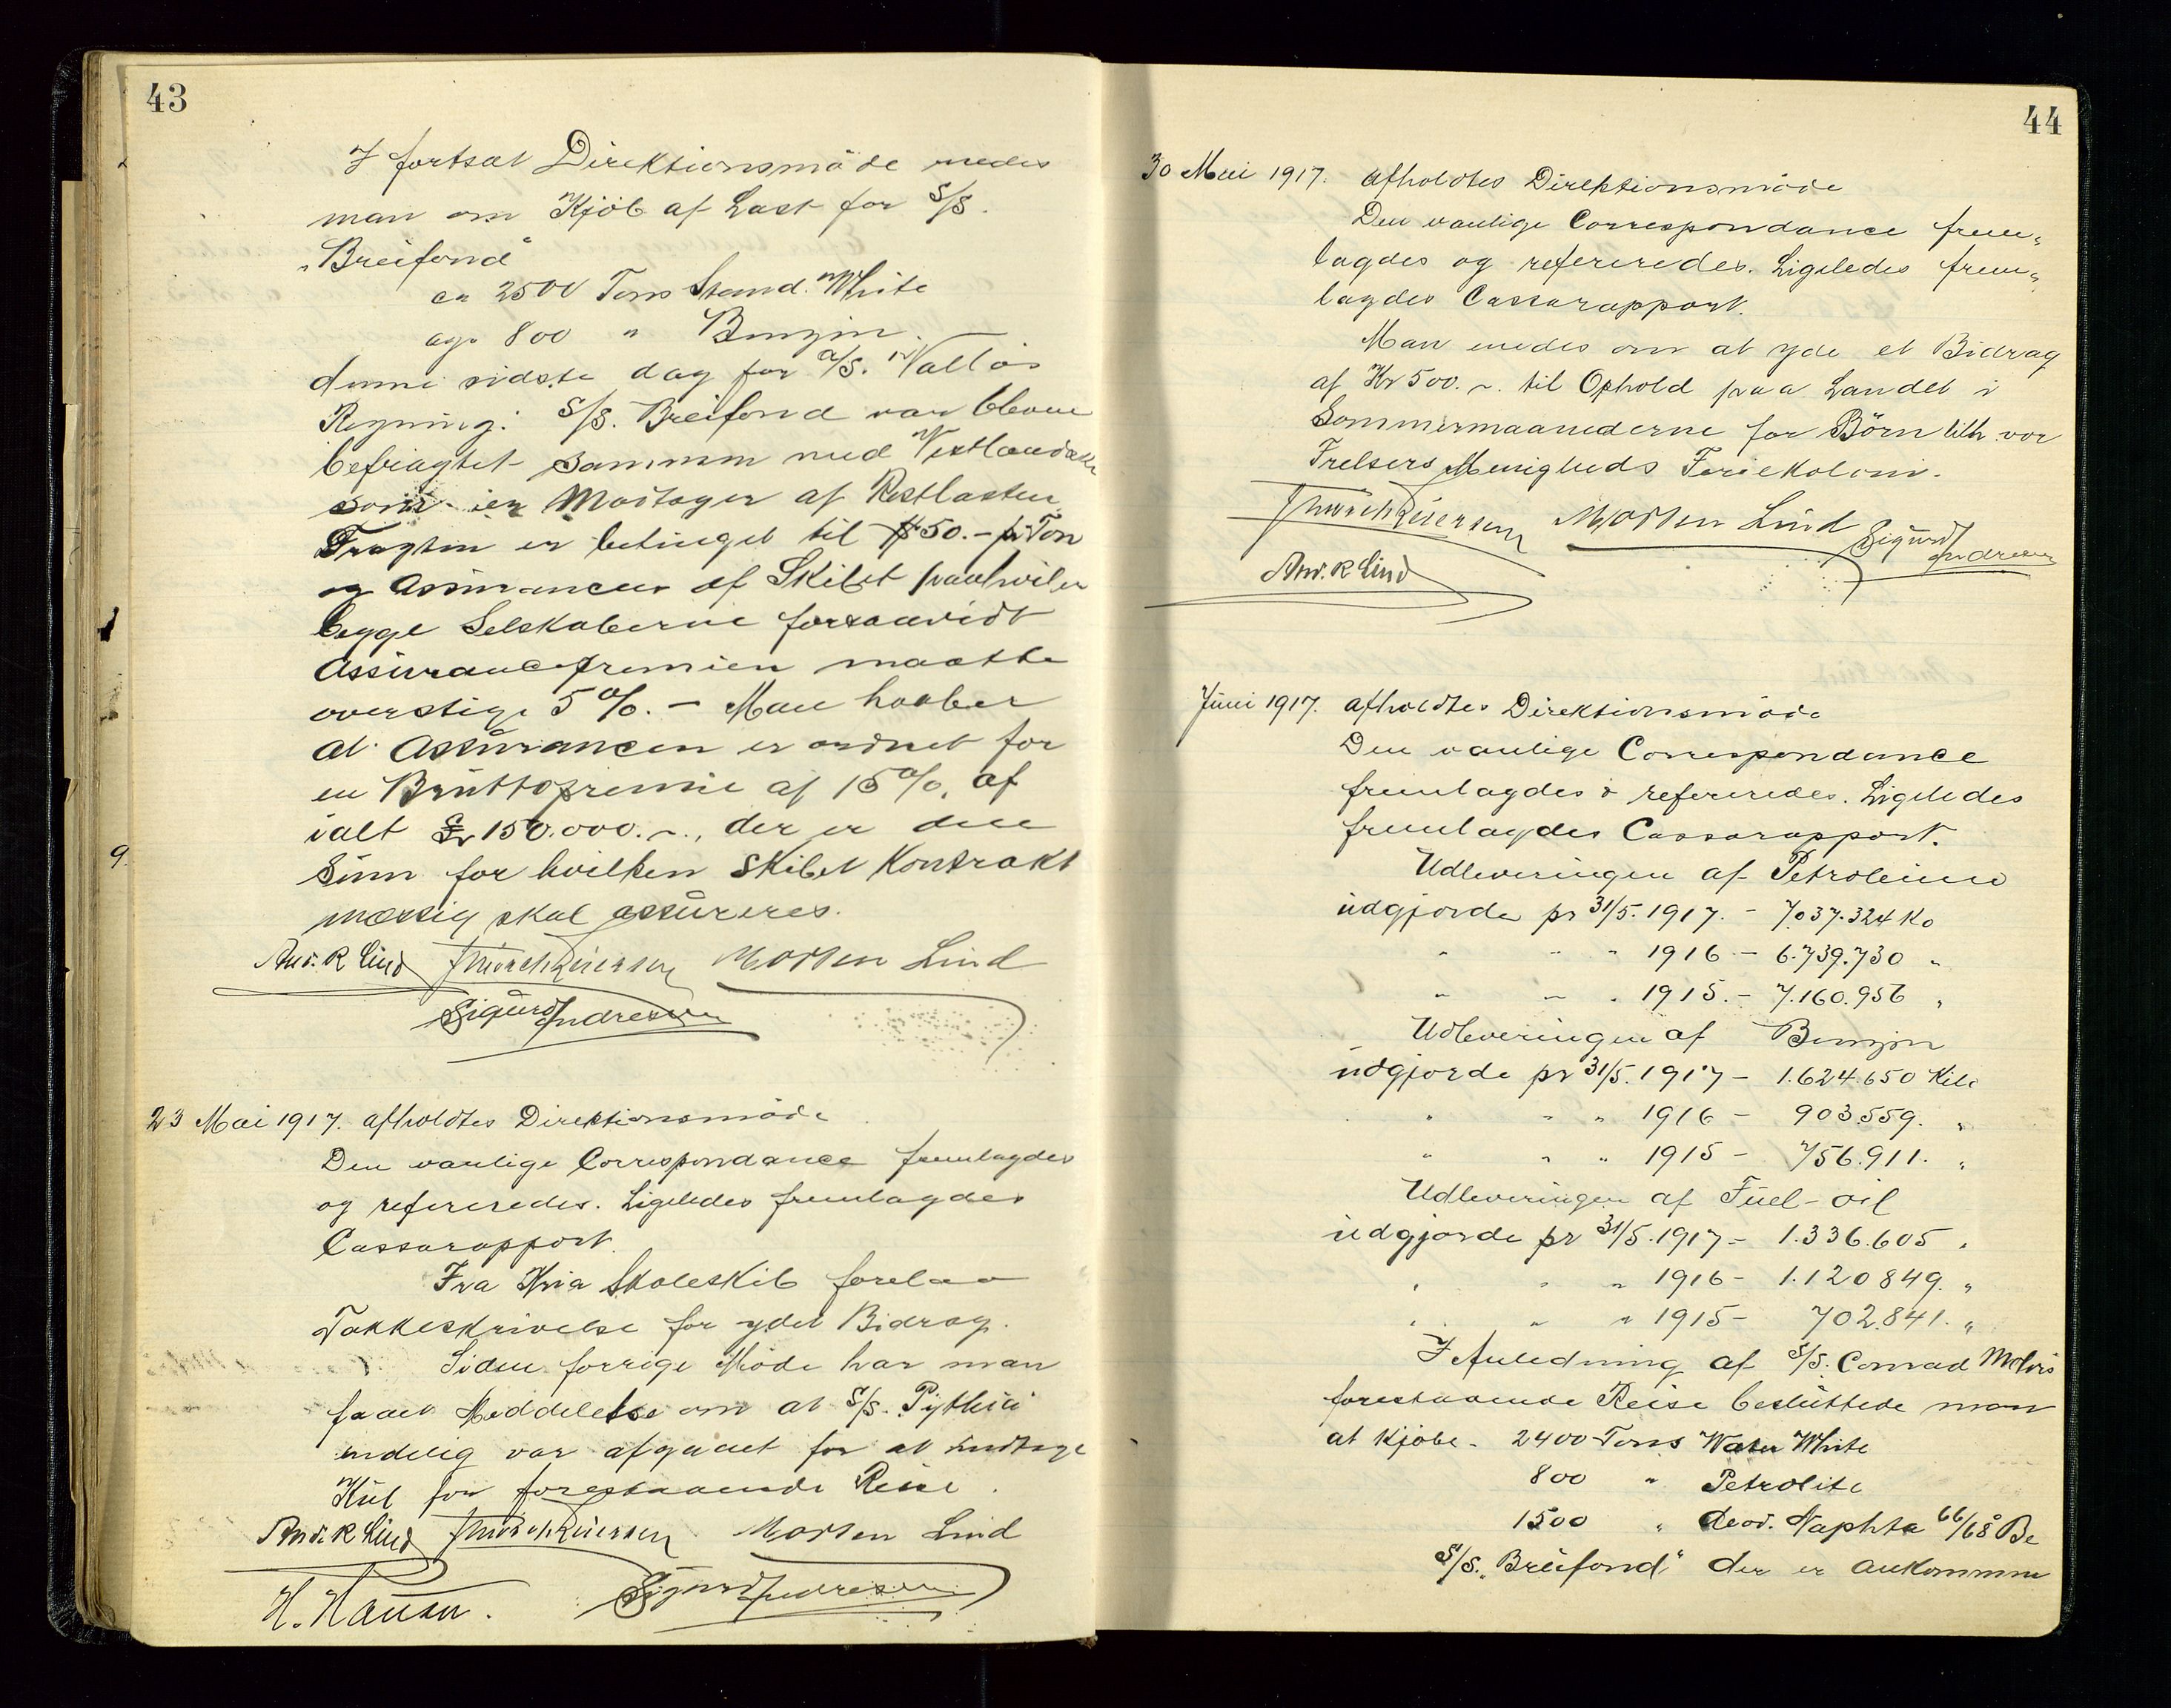 43
I fortsat Direktionsmöde enedes
man om Kjöb af Last for S/S.
„Breifond"
ca 2500 Tons Stand. White
og 800 " Benzin. —
denne sidste dag for A/S. "Vallös
Regning: S/S. Breifond var bleven
befragtet sammen med Vestlandske
som er Modtager af Restlasten
Fragten er betinget til $50.- pr Ton
og Assurancen af Skibet paahviler
begge Selskaberne forsaavidt
Assurancepremien maatte
overstige 5%. - Man haaber
at Assurancen er ordnet for
en Bruttopremie af 15%, af
ialt £ 150.000.-, der er den
Sum for hvilken Skibet Kontrakt
mæssig skal assureres.
And. R Lind Morten Lind
Sigurd Andresen
23 Mai 1917. afholdtes Direktionsmöde
Den vanlige Correspondance fremlagdes
og refereredes. Ligeledes fremlagdes
Cassarapport.
Fra Kria Skoleskib forelaa
Takkeskrivelse for ydet Bidrag.
Siden forrige Möde har man
faaet Meddelelse om at S/S. Pythia
endelig var afgaaet for at indtage
Kul for forestaaende Reise.
And. R Lind Morten Lind
H. Hansen. Sigurd Andresen
44
30 Mai 1917. afholdtes Direktionsmöde
Den vanlige Correspondance frem„
lagdes og refereredes. Ligeledes frem„
lagdes Cassarapport.
Man enedes om at yde et Bidrag
af Kr 500.-. til Ophold paa Landet i
Sommermaanederne for Börn tilh. vor
Frelsers Menigheds Feriekoloni.
Morten Lind Sigurd Andresen
And. R Lind
Juni 1917. afholdtes Direktionsmöde
Den vanlige Correspondance
fremlagdes & refereredes. Ligeledes
fremlagdes Cassarapport.
Udleveringen af Petroleum
udgjorde pr 31/5. 1917. - 7.037.324 Ko
" " " 1916 - 6.739.730 "
" " " 1915. - 7.160.956 "
Udleveringen af Benzin
udgjorde pr 31/5. 1917 - 1.624.650 Kilo
" " " 1916 - 903.559. "
" " " 1915 - 756.911. "
Udleveringen af Fuel-oil
udgjorde pr 31/5. 1917 - 1.336.605 "
" " " 1916 - 1.120.849. "
" " " 1915 - 702.841. "
I Anledning af S/S. Conrad Mohrs
forestaaende Reise besluttede man
at Kjöbe. 2400 Tons Water White
800 " Petrolite
1500 " deod. Naphta 66/68° Be
S/S. „Breifond" der er ankommen